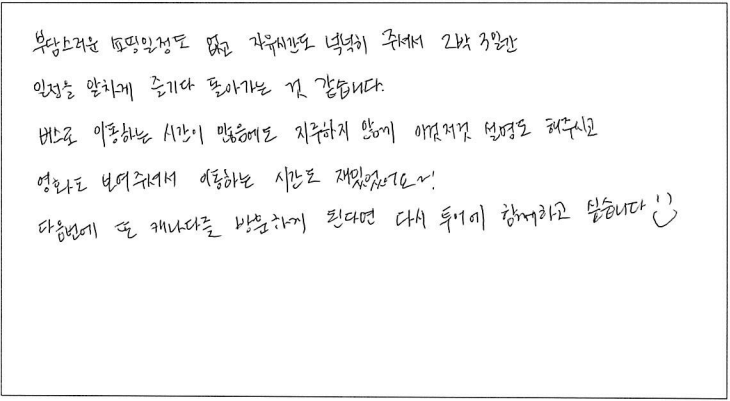 부담스러운 쇼핑일정도 없고 자유시간도 넉넉히 주셔서 2박 3일간
일정을 알차게 즐기다 돌아가는 것 같습니다.
버스로 이동하는 시간이 많음에도 지루하지 않게 이것저것 설명도 해주시고
영화도 보여주셔서 이동하는 시간도 재밌었어요~!
다음번에 또 캐나다를 방문하게 된다면 다시 투어에 함께하고 싶습니다 :)